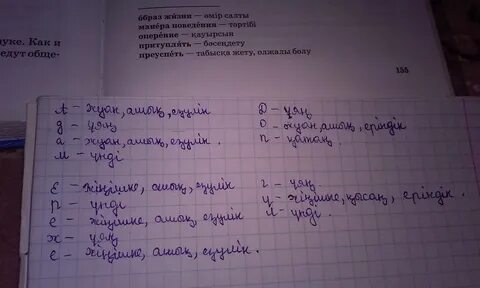 о́браз жи́зни — өмір салты
мане́ра поведе́ния — тәртібі
опере́ние — қауырсын
притупля́ть — бәсеңдету
преуспе́ть — табысқа жету, олжалы болу
уке. Как и
едут обще-
155
А – жуан, ашық, езулік
д – ұяң
а – жуан, ашық, езулік.
м – үнді
Д – ұяң
О – жуан, ашық, еріндік
п – қатаң.
Е – жіңішке, ашық, езулік
р – үнді
е – жіңішке, ашық, езулік
ж – ұяң
е – жіңішке, ашық, езулік.
г – ұяң
ү – жіңішке, қысаң, еріндік.
л – үнді.